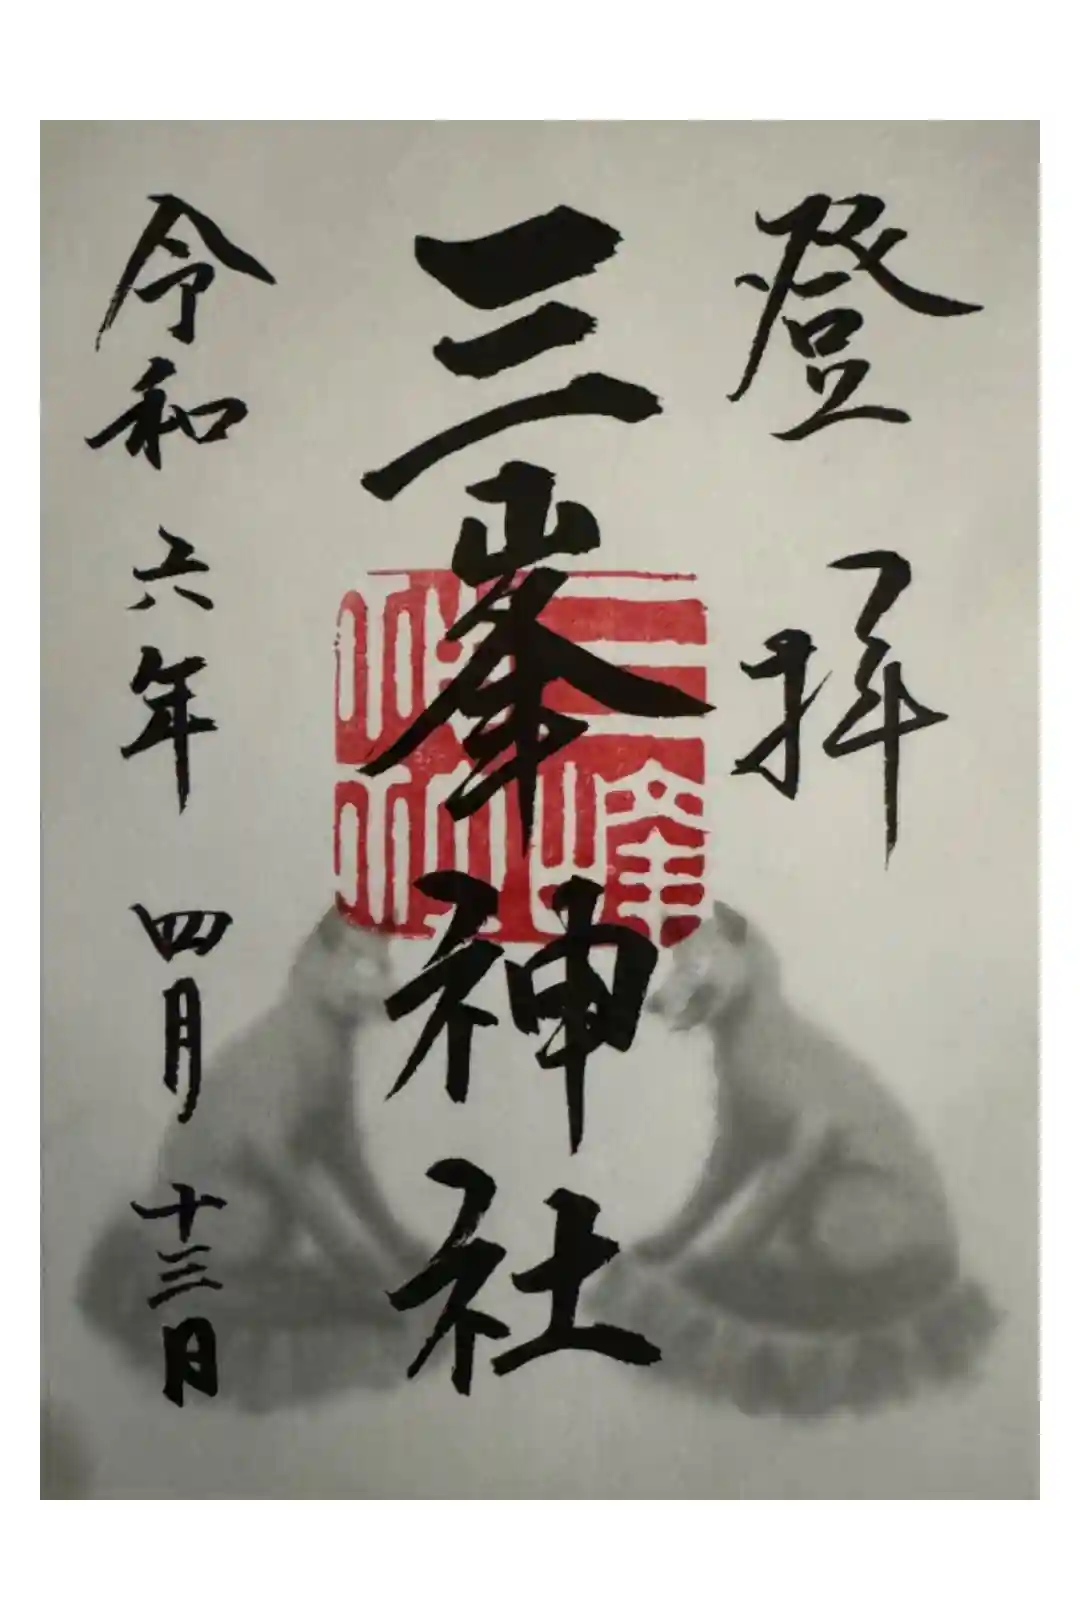 登拝
三峯神社
三峰神社
令和六年 四月 十三日